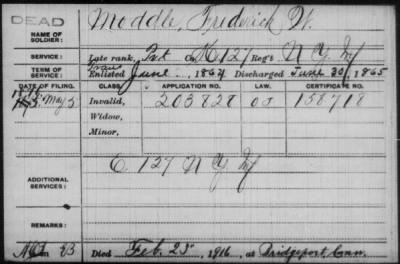 DEAD
NAME OF SOLDIER: Moddle, Frederick W.
SERVICE: Late rank, Pvt Co. K 127 Reg't N Y Inf
TERM OF SERVICE: Trans Enlisted June 1864 Discharged June 30, 1865
DATE OF FILING. CLASS. APPLICATION NO. LAW. CERTIFICATE NO.
1875 May 5 Invalid, 203828 158718
Widow,
Minor,
C. 127 N Y Inf
ADDITIONAL SERVICES:
REMARKS:
Died Feb. 25, 1916, at Bridgeport, Conn.